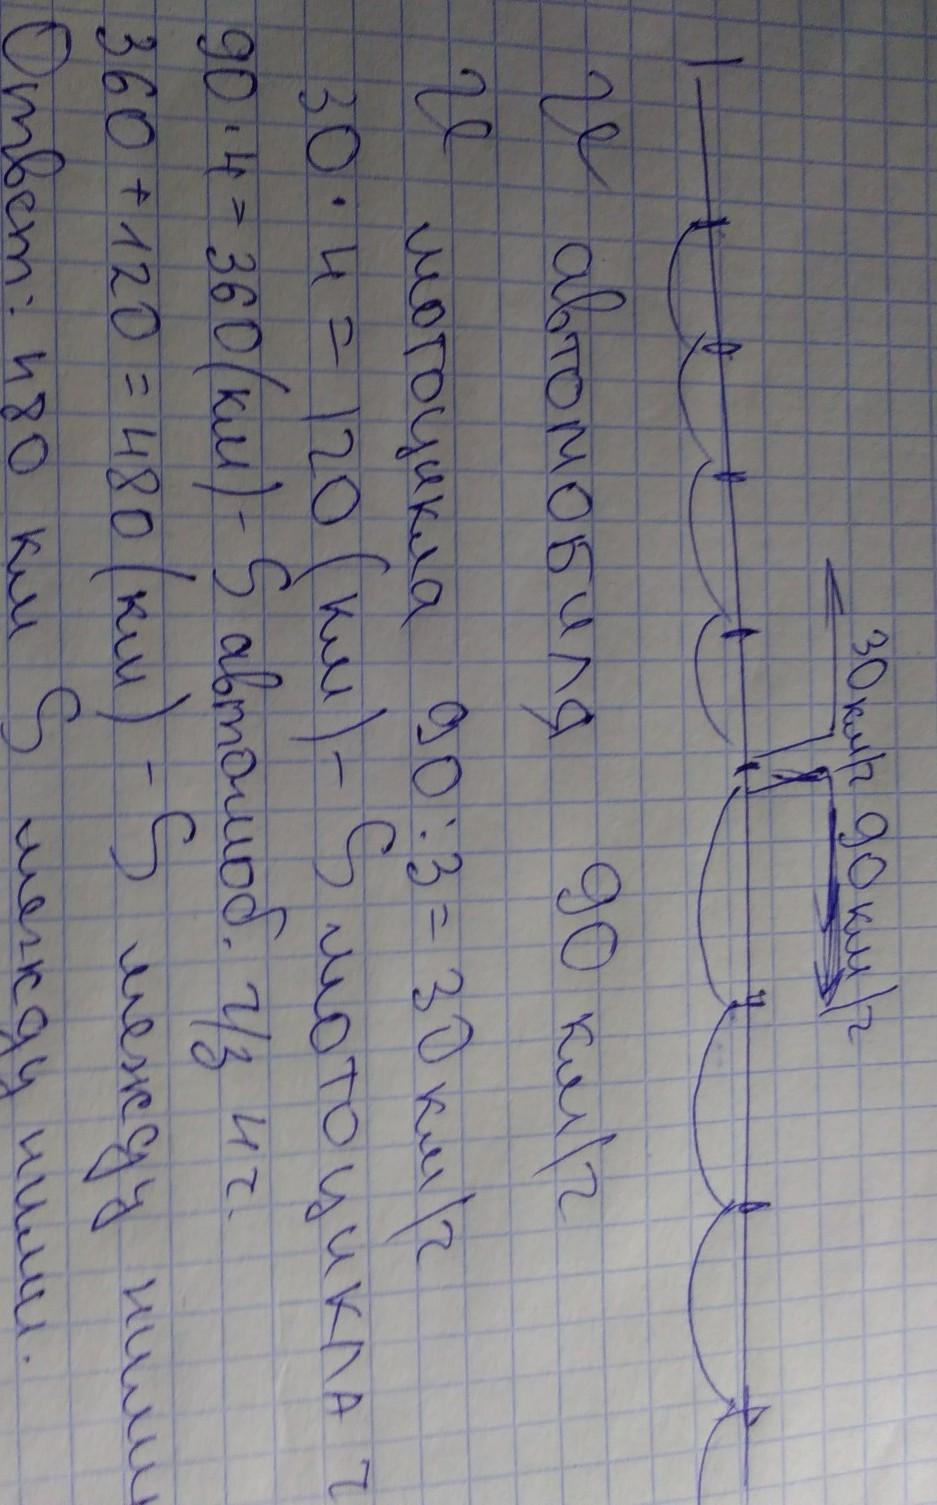 30 км/ч 90 км/ч
V автомобиля 90 км/ч
V мотоцикла 90:3=30 км/ч
30·4=120 (км)- S мотоцикла ч
90·4=360 (км)- S автомоб. ч/з 4ч.
360+120=480 (км) - S между ними
Ответ: 480 км S между ними.